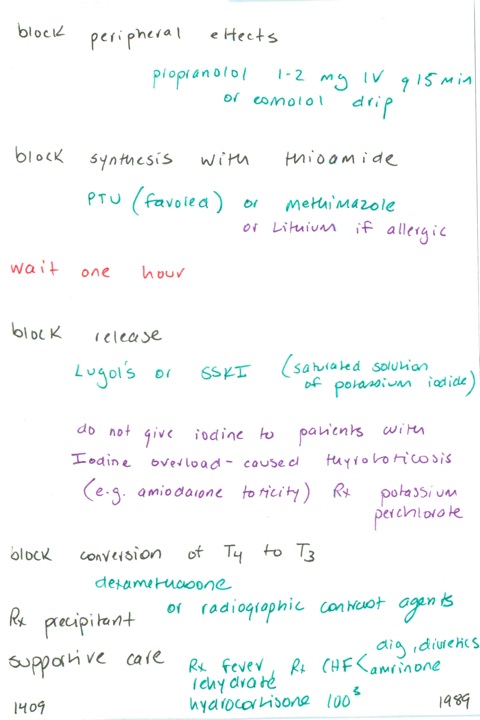 block peripheral effects
propranolol 1-2 mg IV q 15 min
or esmolol drip
block synthesis with thioamide
PTU (favored) or methimazole
or Lithium if allergic
wait one hour
block release
Lugol's or SSKI (saturated solution
of potassium iodide)
do not give iodine to patients with
Iodine overload-caused thyrotoxicosis
(e.g. amiodarone toxicity) Rx potassium
perchlorate
block conversion of T4 to T3
dexamethasone
or radiographic contrast agents
Rx precipitant
supportive care Rx fever, Rx CHF < dig, diuretics
amrinone
rehydrate
hydrocortisone 100s
1409 1989